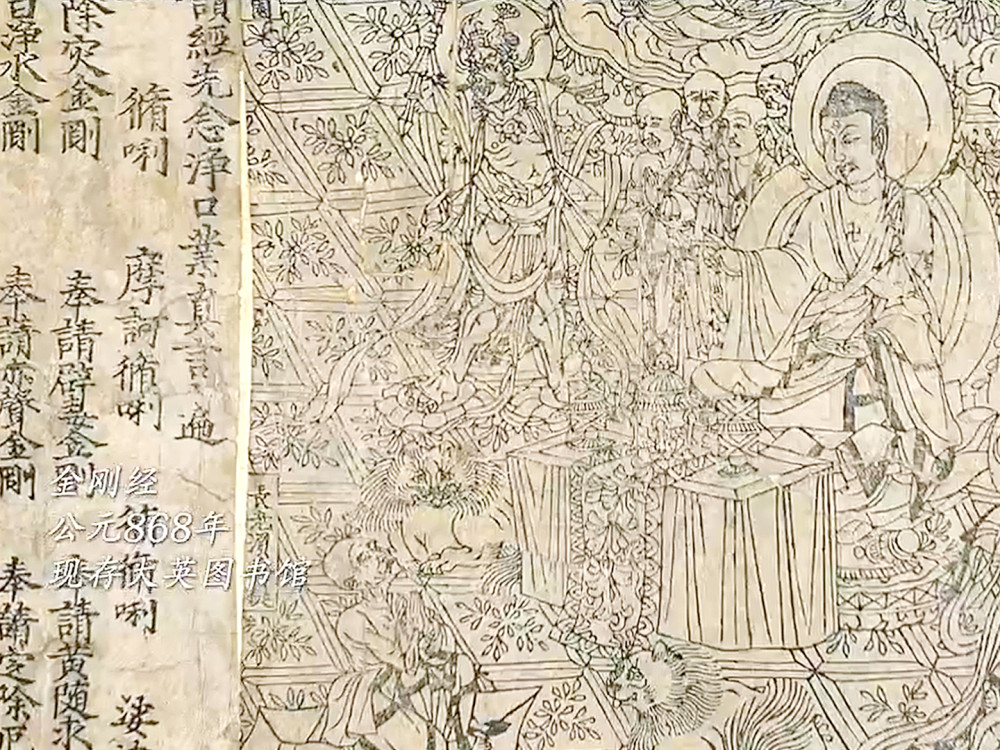 園
讀經先念淨口業真言一遍
脩唎 摩訶脩唎 脩脩唎 娑
除灾金剛 奉請辟毒金剛 奉請黃随求
白淨水金剛 奉請赤聲金剛 奉請定除厄
長老須菩提
金刚经
公元868年
现存大英图书馆